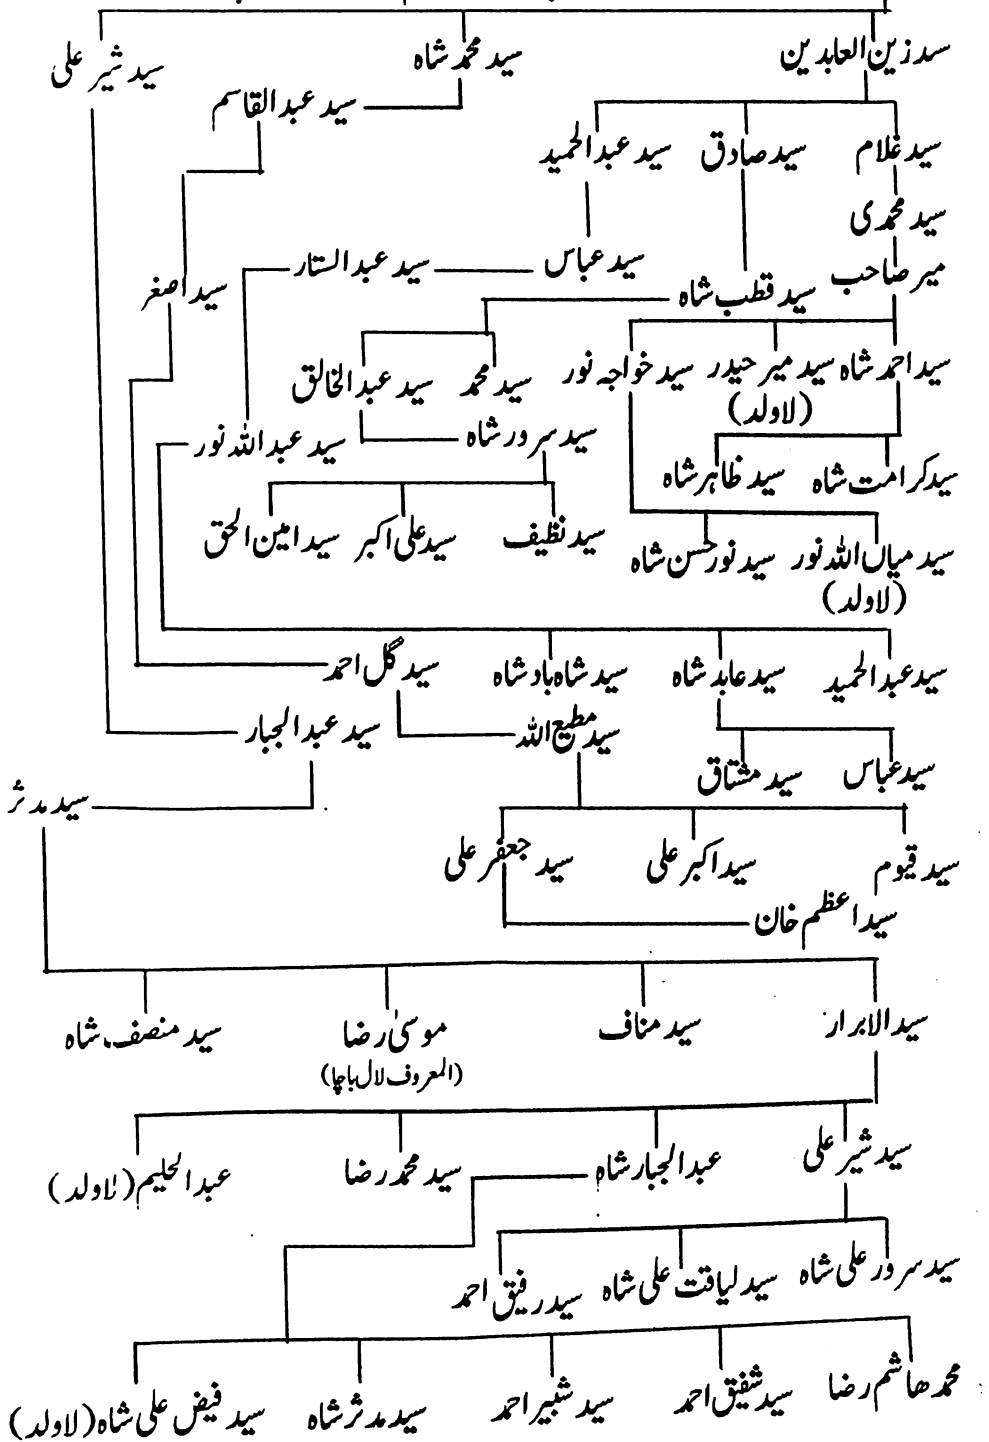 سید زین العابدین سید محمد شاہ سید شیر علی
سید عبد القاسم
سید غلام سید صادق سید عبد الحمید
سید محمدی
میر صاحب سید عباس سید عبد الستار سید اصغر
سید قطب شاہ
سید احمد شاہ سید میر حیدر سید خواجہ نور سید محمد سید عبد الخالق
(لاولد)
سید سرور شاہ سید عبد اللہ نور
سید کرامت شاہ سید ظاہر شاہ
سید نظیف سید علی اکبر سید امین الحق
سید میاں اللہ نور سید نور حسن شاہ
(لاولد)
سید عبد الحمید سید عابد شاہ سید شاہ باد شاہ سید گل احمد
سید مطیع اللہ سید عبد الجبار
سید عباس سید مشتاق
سید مدثر
سید قیوم سید اکبر علی سید جعفر علی
سید اعظم خان
سید الابرار سید مناف موسیٰ رضا سید منصف شاہ
(المعروف لال باچا)
سید شیر علی عبد الجبار شاہ سید محمد رضا عبد الحلیم (لاولد)
سید سرور علی شاہ سید لیاقت علی شاہ سید رفیق احمد
محمد هاشم رضا سید شفیق احمد سید شبیر احمد سید مدثر شاہ سید فیض علی شاہ (لاولد)